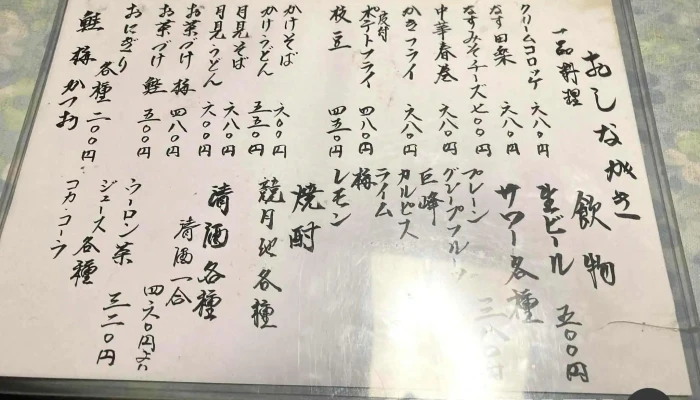 おしながき
一品料理
クリームコロッケ 六八〇円
なす田楽 六八〇円
なすみそチーズ 七〇〇円
中華春巻 六八〇円
かきフライ 六八〇円
皮付ポテトフライ 四八〇円
枝豆 四五〇円
かけそば 六〇〇円
かけうどん 五五〇円
月見そば 六八〇円
月見うどん 六〇〇円
お茶づけ 梅 四八〇円
お茶づけ 鮭 五〇〇円
おにぎり 各種 二〇〇円
鮭 梅 かつお
飲物
生ビール 五〇〇円
サワー各種 三八〇円
プレーン
グレープフルーツ
巨峰
カルピス
ライム
梅
レモン
焼酎
競月地各種
清酒各種
清酒一合 四六〇円
ウーロン茶
ジュース各種 三二〇円
コカ・コーラ